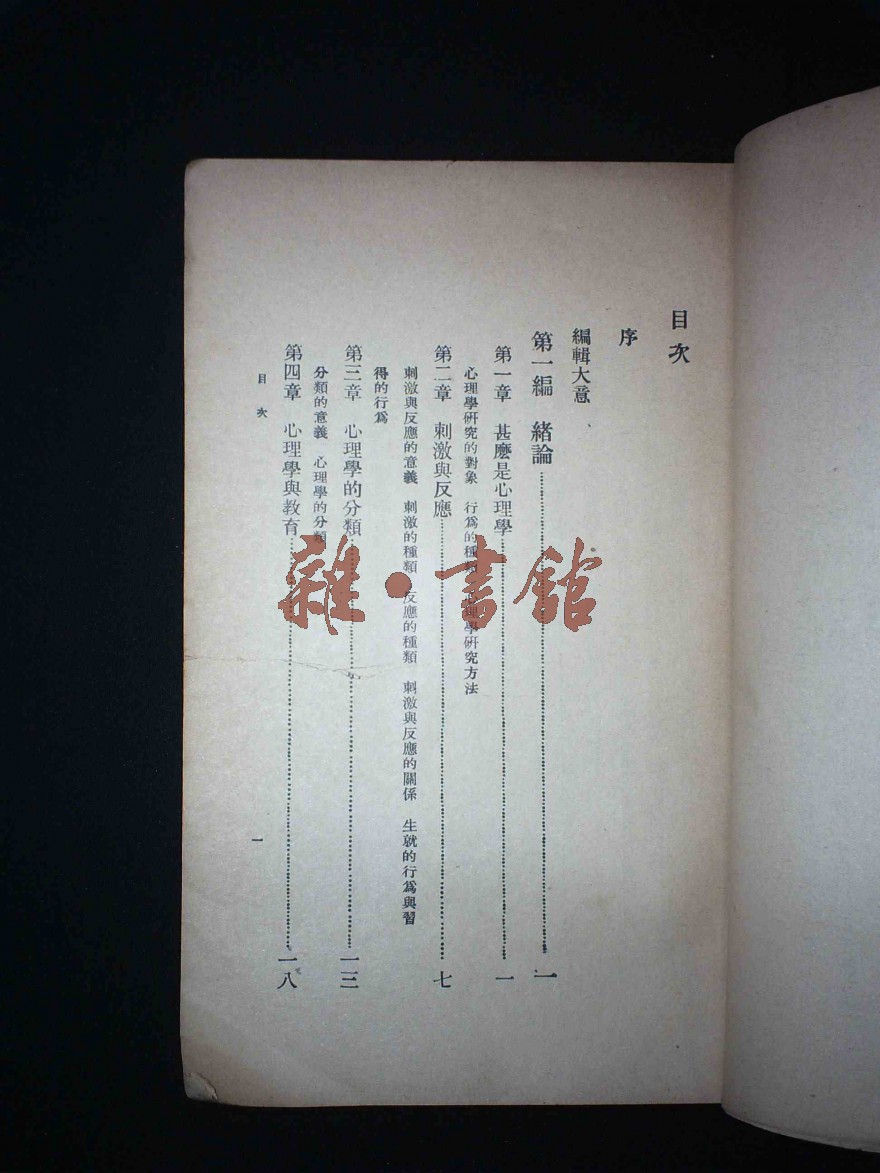 目次
序
編輯大意
第一編　緒論……一
第一章　甚麽是心理學……一
心理學硏究的對象　行爲的種類　心理學硏究方法
第二章　刺激與反應……七
刺激與反應的意義　刺激的種類　反應的種類　刺激與反應的關係　生就的行爲與習
得的行爲
第三章　心理學的分類……一三
分類的意義　心理學的分類
第四章　心理學與教育……一八
目次　一
雜·書館